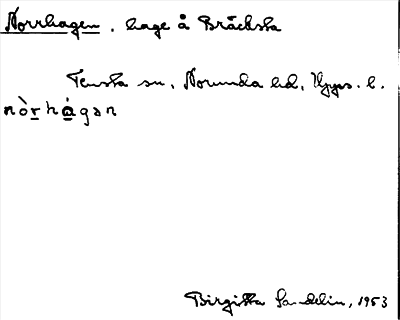 Norrhagen, hage å Bräcksta
Tensta sn, Norunda hd, Upps. l.
nòrhágan
Birgitta Sandelin, 1953